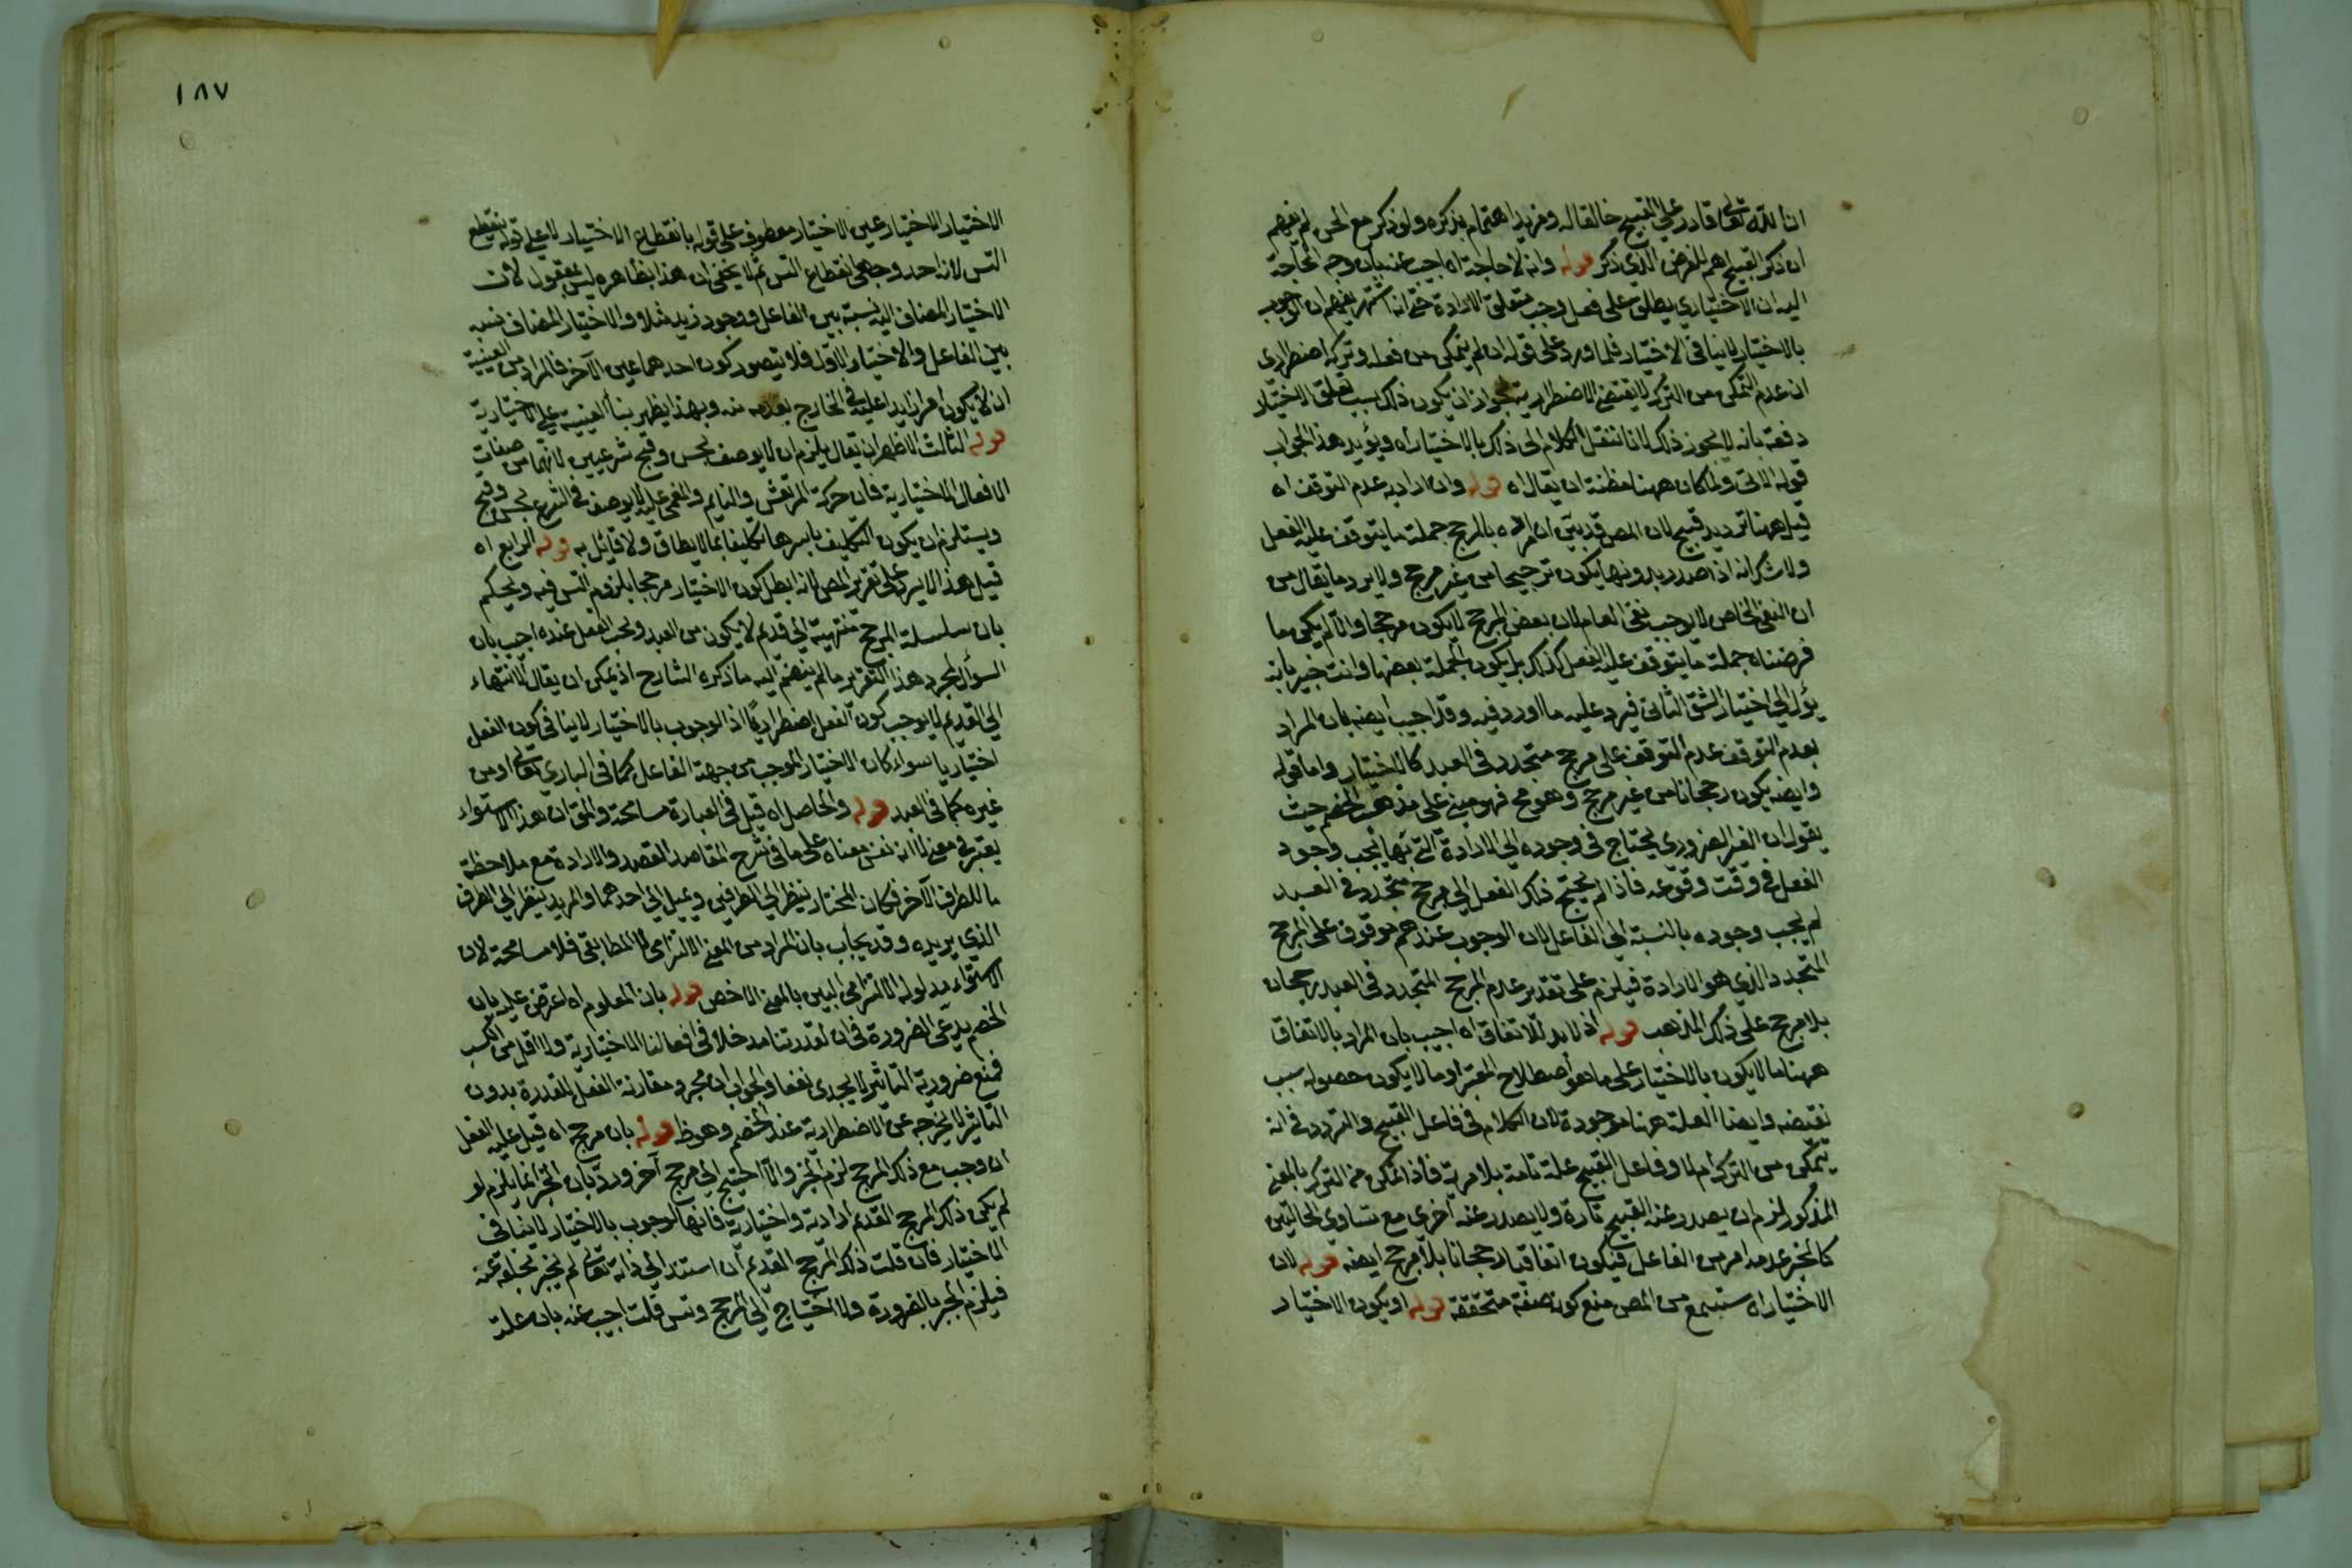 ان الله تعالى قادر على القبيح خالقاله ومزيد اهتمام بذكره ولو ذكر مع الحسن لم يفهم
ان ذكر القبيح اهم للغرض الذي ذكر قوله وانه لا حاجة اه اجيب عنه بيان وجه الحاجة
اليه ان الاختياري يطلق على فعل وجب بتعلق الارادة حتى انه اشتهر بينهم ان الوجوب
بالاختيار لا ينافي الاختيار فلما ورد على قوله ان لم يتمكن من فعله وتركه اضطراري
ان عدم التمكن من الترك لا يقتضي الاضطرارية لجواز ان يكون ذلك بسبب تعلق الاختيار
دفعه بانه لا يجوز ذلك لانا ننقل الكلام الى ذلك بالاختيار اه ويؤيد هذا الجواب
قوله الاتى ولما كان ههنا مظنة ان يقال اه قوله وان اراد به عدم التوقف اه
قيل ههنا ترديد قبيح لان المص قد بين ان المراد بالمرجح جملة ما يتوقف عليه الفعل
ولا شك انه اذا صدر بدونها يكون ترجيحا من غير مرجح ولا يرد ما يقال من
ان النفي الخاص لا يوجب نفى العام لان بعض المرجح لا يكون مرجحا والا لم يكن ما
فرضناه جملة ما يتوقف عليه الفعل كذلك بل يكون الجملة بعضها وانت خبير بانه
يؤل الى اختيار الشق الثاني فيرد عليه ما اورد فيه وقد اجيب ايضه بان المراد
بعدم التوقف عدم التوقف على مرجح متجدد في العبد كالاختيار واما قوله
وايضه يكون رجحانا من غير مرجح وهو مح فهو مبني على مذهب الخصم حيث
يقول ان الغير الضروري يحتاج في وجوده الى الارادة التي بها يجب وجود
الفعل في وقت وقوعه فاذا لم يحتج ذلك الفعل الى مرجح متجدد في العبد
لم يجب وجوده بالنسبة الى الفاعل لان الوجوب عندهم موقوف على المرجح
المتجدد الذي هو الارادة فيلزم على تقدير عدم المرجح المتجدد في العبد رجحان
بلا مرجح على ذلك المذهب قوله اذ لا بد للاتفاق اه اجيب بان المراد بالاتفاق
ههنا ما لا يكون بالاختيار على ما هو اصطلاح المعتبر او ما لا يكون حصوله سبب
نقتضه وايضا العلة ههنا موجودة لان الكلام في فاعل القبيح والتردد في انه
يتمكن من الترك ام لا وفاعل القبيح علة تامة بلا مرية فاذا تمكن من الترك بالمعنى
المذكور لزم ان يصدر عنه القبيح تارة ولا يصدر عنه اخرى مع تساوي الحالتين
من الفاعل فيكون اتفاقيا ورجحانا بلا مرجح ايضه قوله لان
الاختيار اه ستسمع من المص منع كونه صفة متحققة قوله او يكون الاختيار
١٨٧
الاختيار الاختيار عين الاختيار معطوف على قوله بانقطاع الاختيار لا على قوله ينقطع
التس لانه احد وجهى انقطاع التس ثم لا يخفى ان هذا بظاهره ليس بمعقول لان
الاختيار المضاف اليه نسبة بين الفاعل ووجود زيد مثلا والاختيار المضاف نسبه
بين الفاعل والاختيار الاول فلا يتصور كون احدهما عين الآخر فالمراد من العينية
ان لا يكون امرا زايدا عليه في الخارج بعدمه منه وبهذا يظهر بناء العينية على الاختيارية
قوله الثالث الاظهر ان يقال يلزم ان لا يوصف بحسن وقبح شرعيين لانهما من صفات
الافعال الاختيارية فان حركة المرتعش والنايم والمغمى عليه لا يوصف في الشرع بحسن وقبح
ويستلزم ان يكون التكليف باسرها تكليفا بما لا يطاق ولا قائل به قوله الرابع اه
قيل هذا لا يرد على تقرير المص لانه ابطل كون الاختيار مرجحا بلزوم التس فيه ويحكم
بان سلسلة المرجح منتهية الى قديم لا يكون من العبد ويجب الفعل عنده اجيب بان
السؤال لمجرد هذا التقرير ما لم ينضم اليه ما ذكره الشارح اذ يمكن ان يقال الانتهاء
الى القديم لا يوجب كون الفعل اضطراريا اذ الوجوب بالاختيار لا ينافي كون الفعل
اختياريا سواء كان الاختيار الموجب من جهة الفاعل كما في الباري تعالى او من
غيره كما في العبد قوله والحاصل اه قيل في العبارة مسامحة والحق ان هذا الاستواء
يعتبر في معنى لا انه نفس معناه على ما في شرح المقاصد القصد والارادة مع ملاحظة
ما للطرف الآخر فكان المختار ينظر الى الطرفين ويميل الى احدهما والمريد ينظر الى الطرف
الذي يريده وقد يجاب بان المراد من المعنى الالتزامى لا المطابقى فلا مسامحة لان
الاستواء مدلوله الالتزامى البين بالمعنى الاخص قوله بان المعلوم اه اعترض عليه بان
الخصم يدعى الضرورة في ان لقدرتنا مدخلا في افعالنا الاختيارية ولا اقل من الكسب
فمنع ضرورية التاثير لا يجدي نفعا والجواب ان مجرد مقارنة الفعل للقدرة بدون
التاثير لا يخرجه عن الاضطرارية عند الخصم وهو ظ قوله بان مرجح اه قيل عليه الفعل
ان وجب مع ذلك المرجح لزم الجبر والا احتيج الى مرجح آخر ورد بان الجبر انما يلزم لو
لم يكن ذلك المرجح القديم ارادية واختيارية فانها الوجوب بالاختيار لا ينافي
الاختيار فان قلت ذلك المرجح القديم ان استند الى ذاته تعالى لم يجز تخلفه عنه
فيلزم الجبر بالضرورة ولا احتياج الى المرجح وتس قلت اجيب عنه بان علة